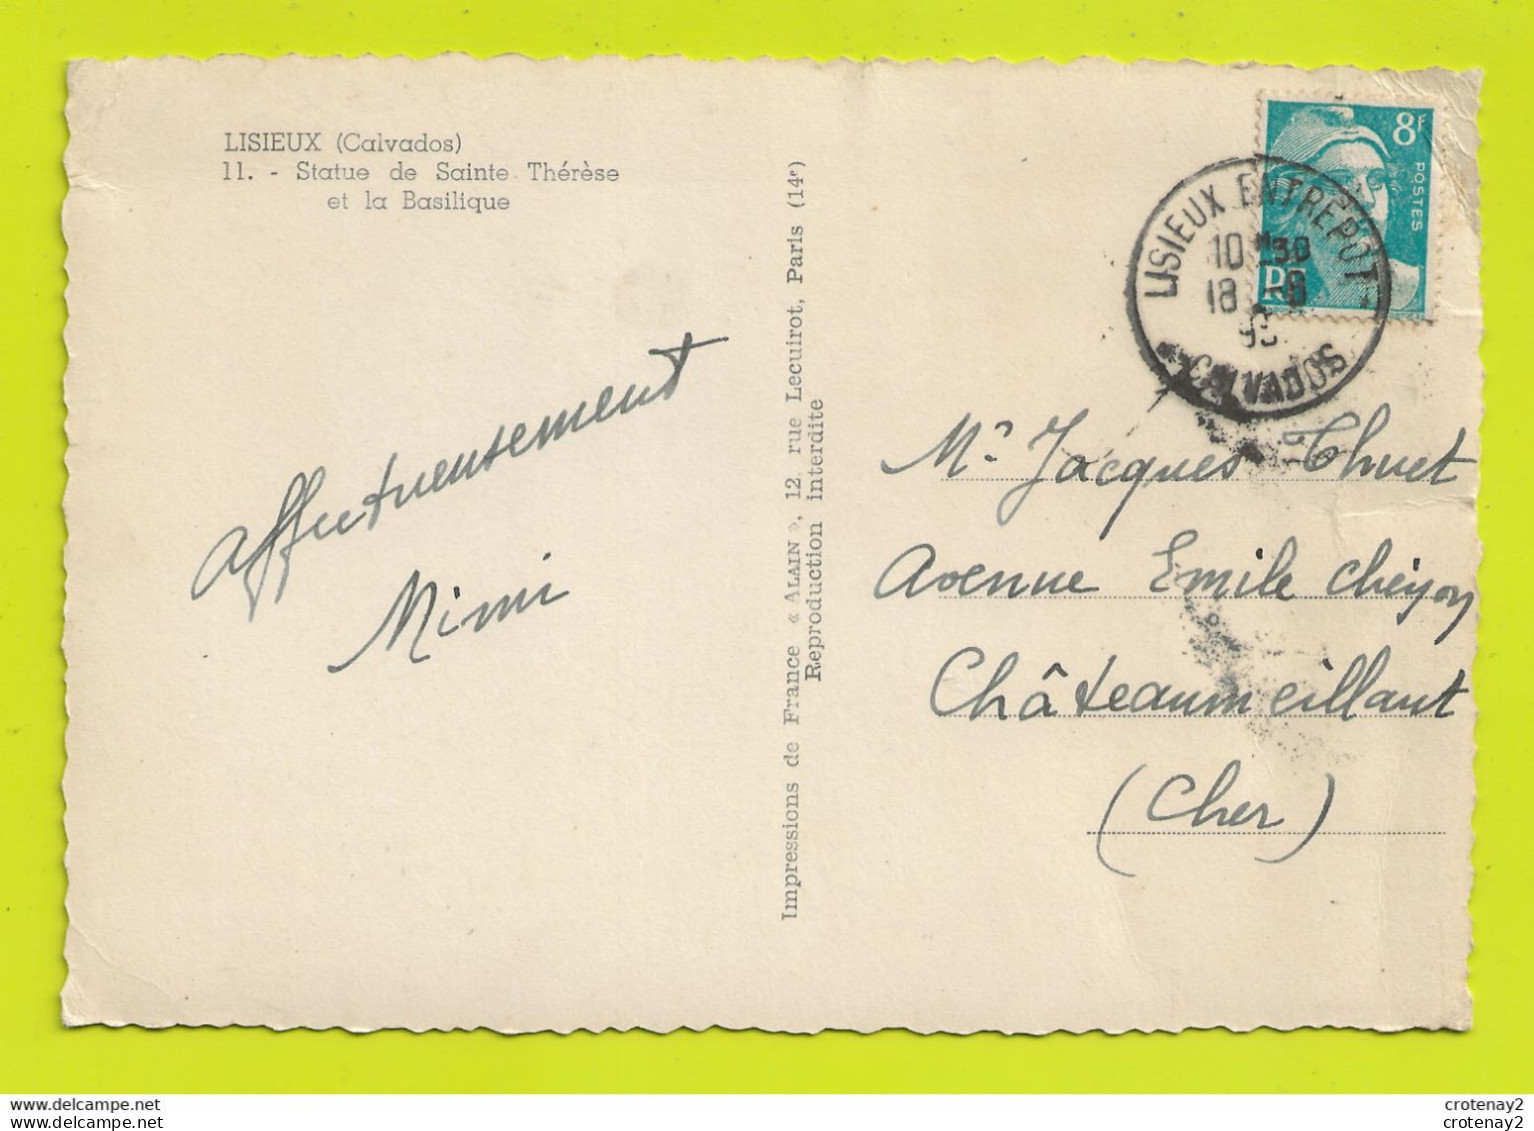 LISIEUX (Calvados)
11. - Statue de Sainte Thérèse
et la Basilique
Affectueusement
Mimi
Impressions de France « ALAIN », 12, rue Lecuirot, Paris (14e)
Reproduction interdite
8F
POSTES
RF
LISIEUX ENTREPOT
10 H30
18 -8
CALVADOS
Mr Jacques Thuet
Avenue Emile
Châteaumeillant
(Cher)
delcampe.net
crotenay2
delcampe.net
crotenay2